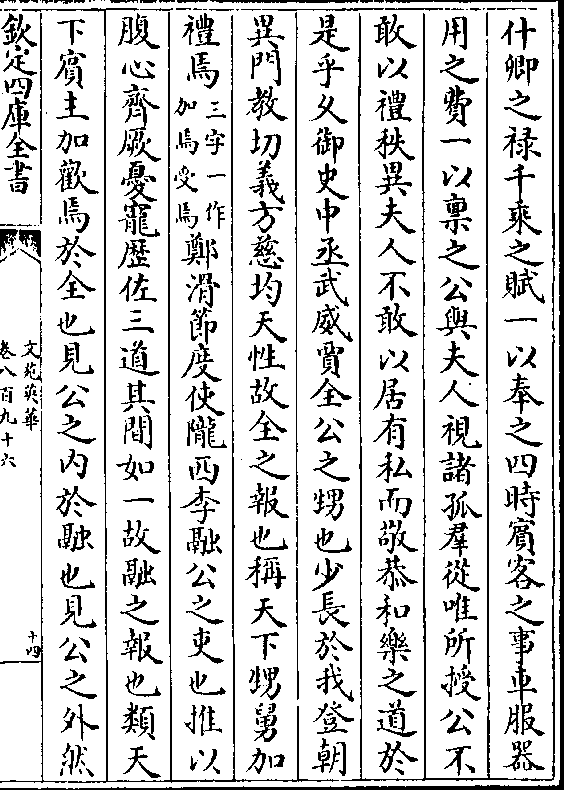 什卿之禄千乘之賦一以奉之四時賓客之事車服器
用之費一以禀之公與夫人視諸孤羣從唯所授公不
敢以禮秩異夫人不敢以居有私而敬恭和樂之道於
是乎乆御史中丞武威賈全公之甥也少長於我登朝
異門教切義方慈均天性故全之報也稱天下甥舅加
禮焉三字一作加焉受焉鄭滑節度使隴西李融公之吏也推以
腹心齊厥憂寵歴佐三道其間如一故融之報也類天
下賓主加歡焉於全也見公之内於融也見公之外然
欽定四庫全書
文苑英華
卷八百九十六
十四